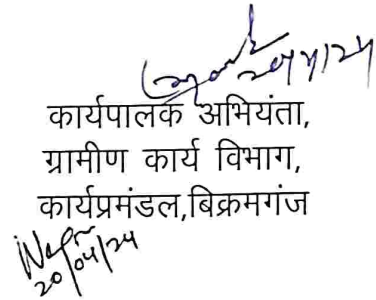 20/4/24
कार्यपालक अभियंता,
ग्रामीण कार्य विभाग,
कार्यप्रमंडल,बिक्रमगंज
20/04/24